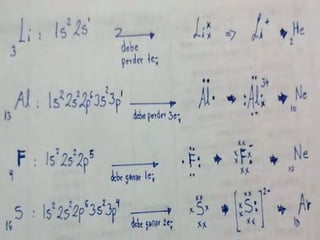 ₃Li : 1s² 2s¹ debe perder 1e⁻ Liˣ ⇒ Li⁺ → ₂He
₁₃Al : 1s² 2s² 2p⁶ 3s² 3p¹ debe perder 3e⁻ Al → Al³⁺ → ₁₀Ne
₉F : 1s² 2s² 2p⁵ debe ganar 1e⁻ F → F⁻ → ₁₀Ne
₁₆S : 1s² 2s² 2p⁶ 3s² 3p⁴ debe ganar 2e⁻ S → [S]²⁻ → ₁₈Ar